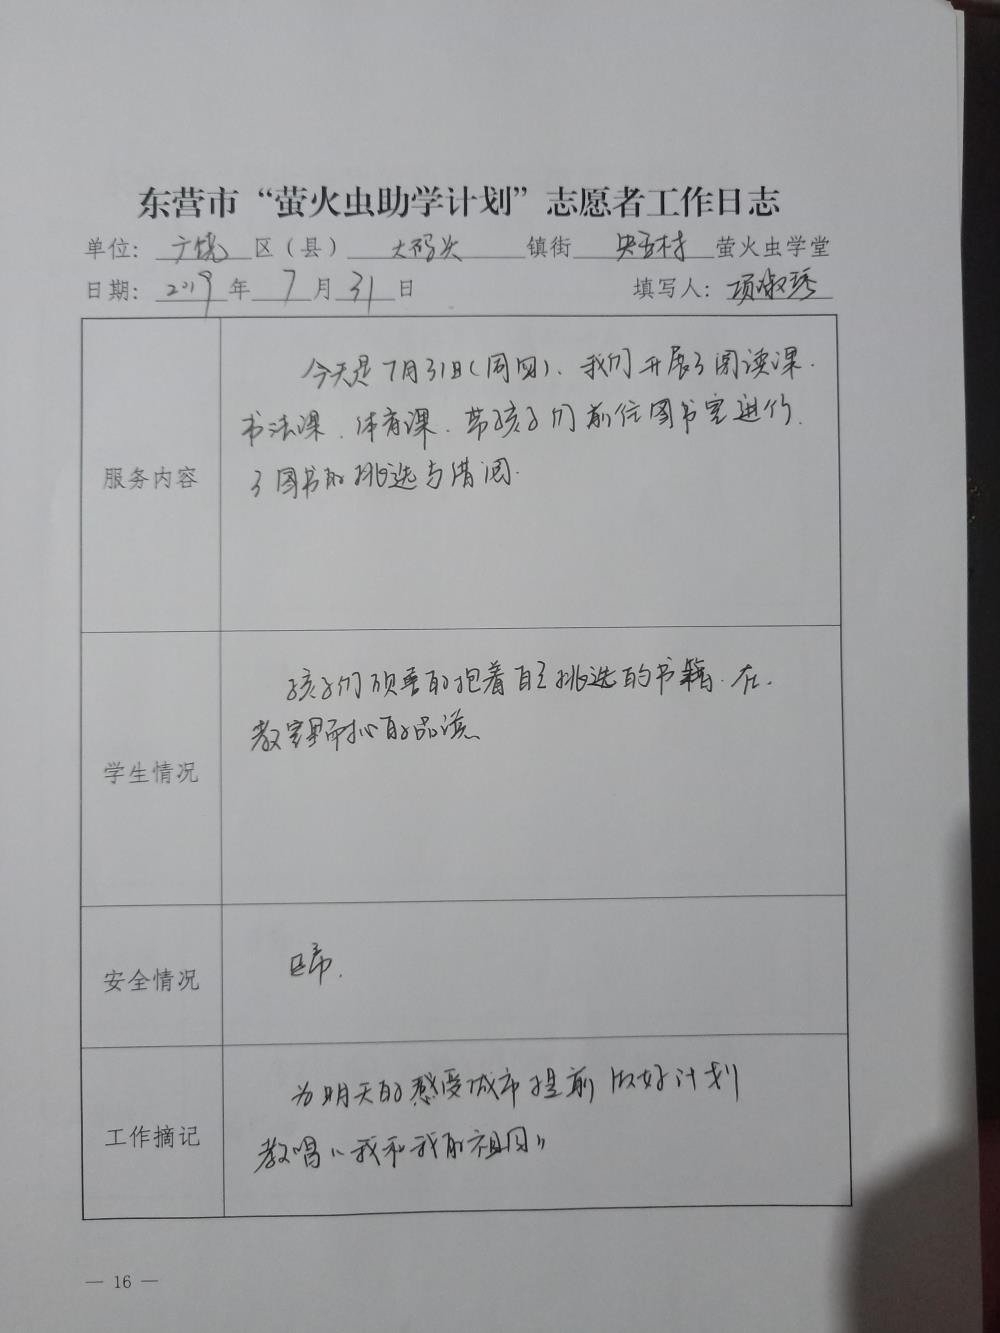 东营市“萤火虫助学计划”志愿者工作日志
单位：广饶区（县）大码头镇街央五村萤火虫学堂
日期：2019年7月31日 填写人：项淑琇
服务内容
今天是7月31日(周四)、我们开展了阅读课.
书法课、体育课、带孩子们前往图书室进行.
了图书的挑选与借阅.
学生情况
孩子们顽喜的抱着自主挑选的书籍.在.
教室里耐心的品读
安全情况
正常.
工作摘记
为明天的感受城市提前做好计划
教唱《我和我的祖国》
— 16 —